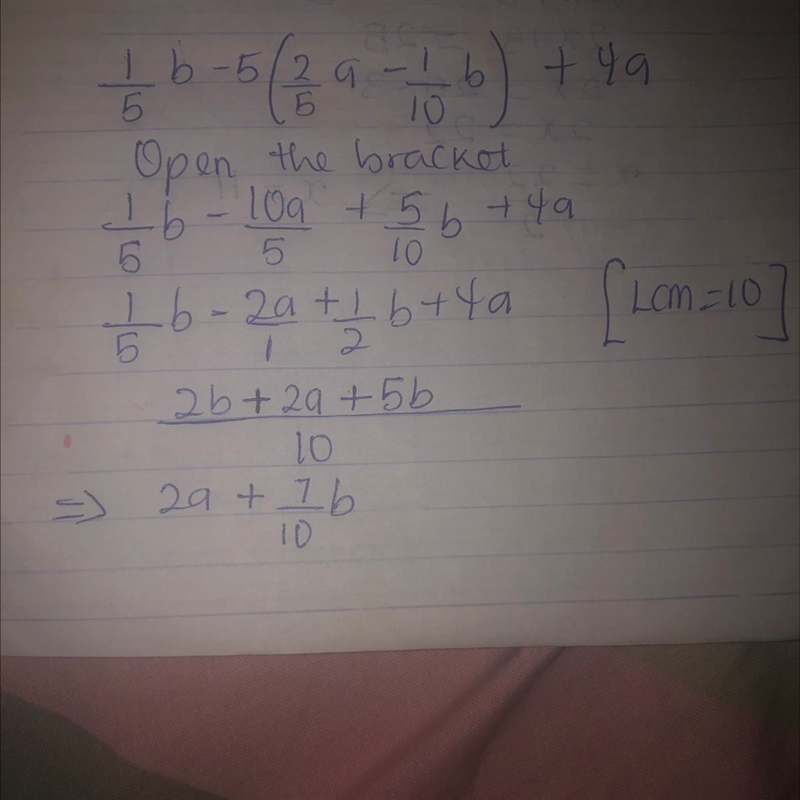 1/5 b - 5(2/5 a - 1/10 b) + 4a
Open the bracket
1/5 b - 10a/5 + 5/10 b + 4a
1/5 b - 2a/1 + 1/2 b + 4a [LCM = 10]
2b + 2a + 5b / 10
⇒ 2a + 7/10 b